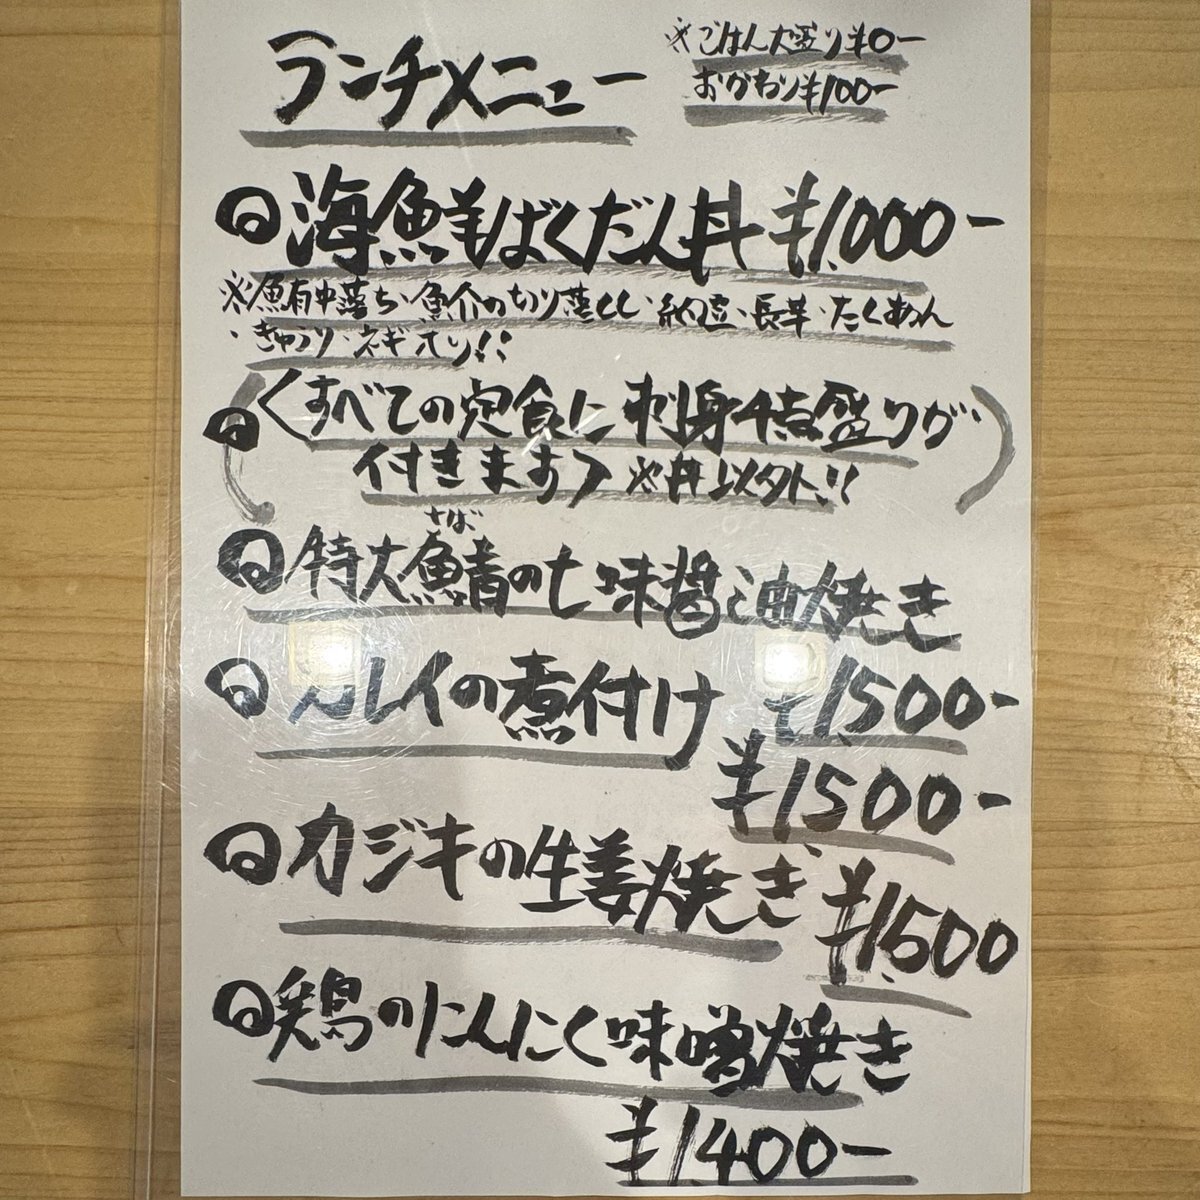 ランチメニュー
※ごはん大盛り¥0ー
おかわり¥100ー
海鮮ばくだん丼 ¥1,000ー
※鮪中落ち・魚介の切り落とし・納豆・長芋・たくあん
・きゅうり・ネギ入り!!
〈すべての定食に刺身4点盛りが
付きます〉※丼以外!!
さば
特大鯖の七味醤油焼き
¥1,500ー
カレイの煮付け
¥1,500ー
カジキの生姜焼き ¥1,500
鶏のにんにく味噌焼き
¥1,400ー